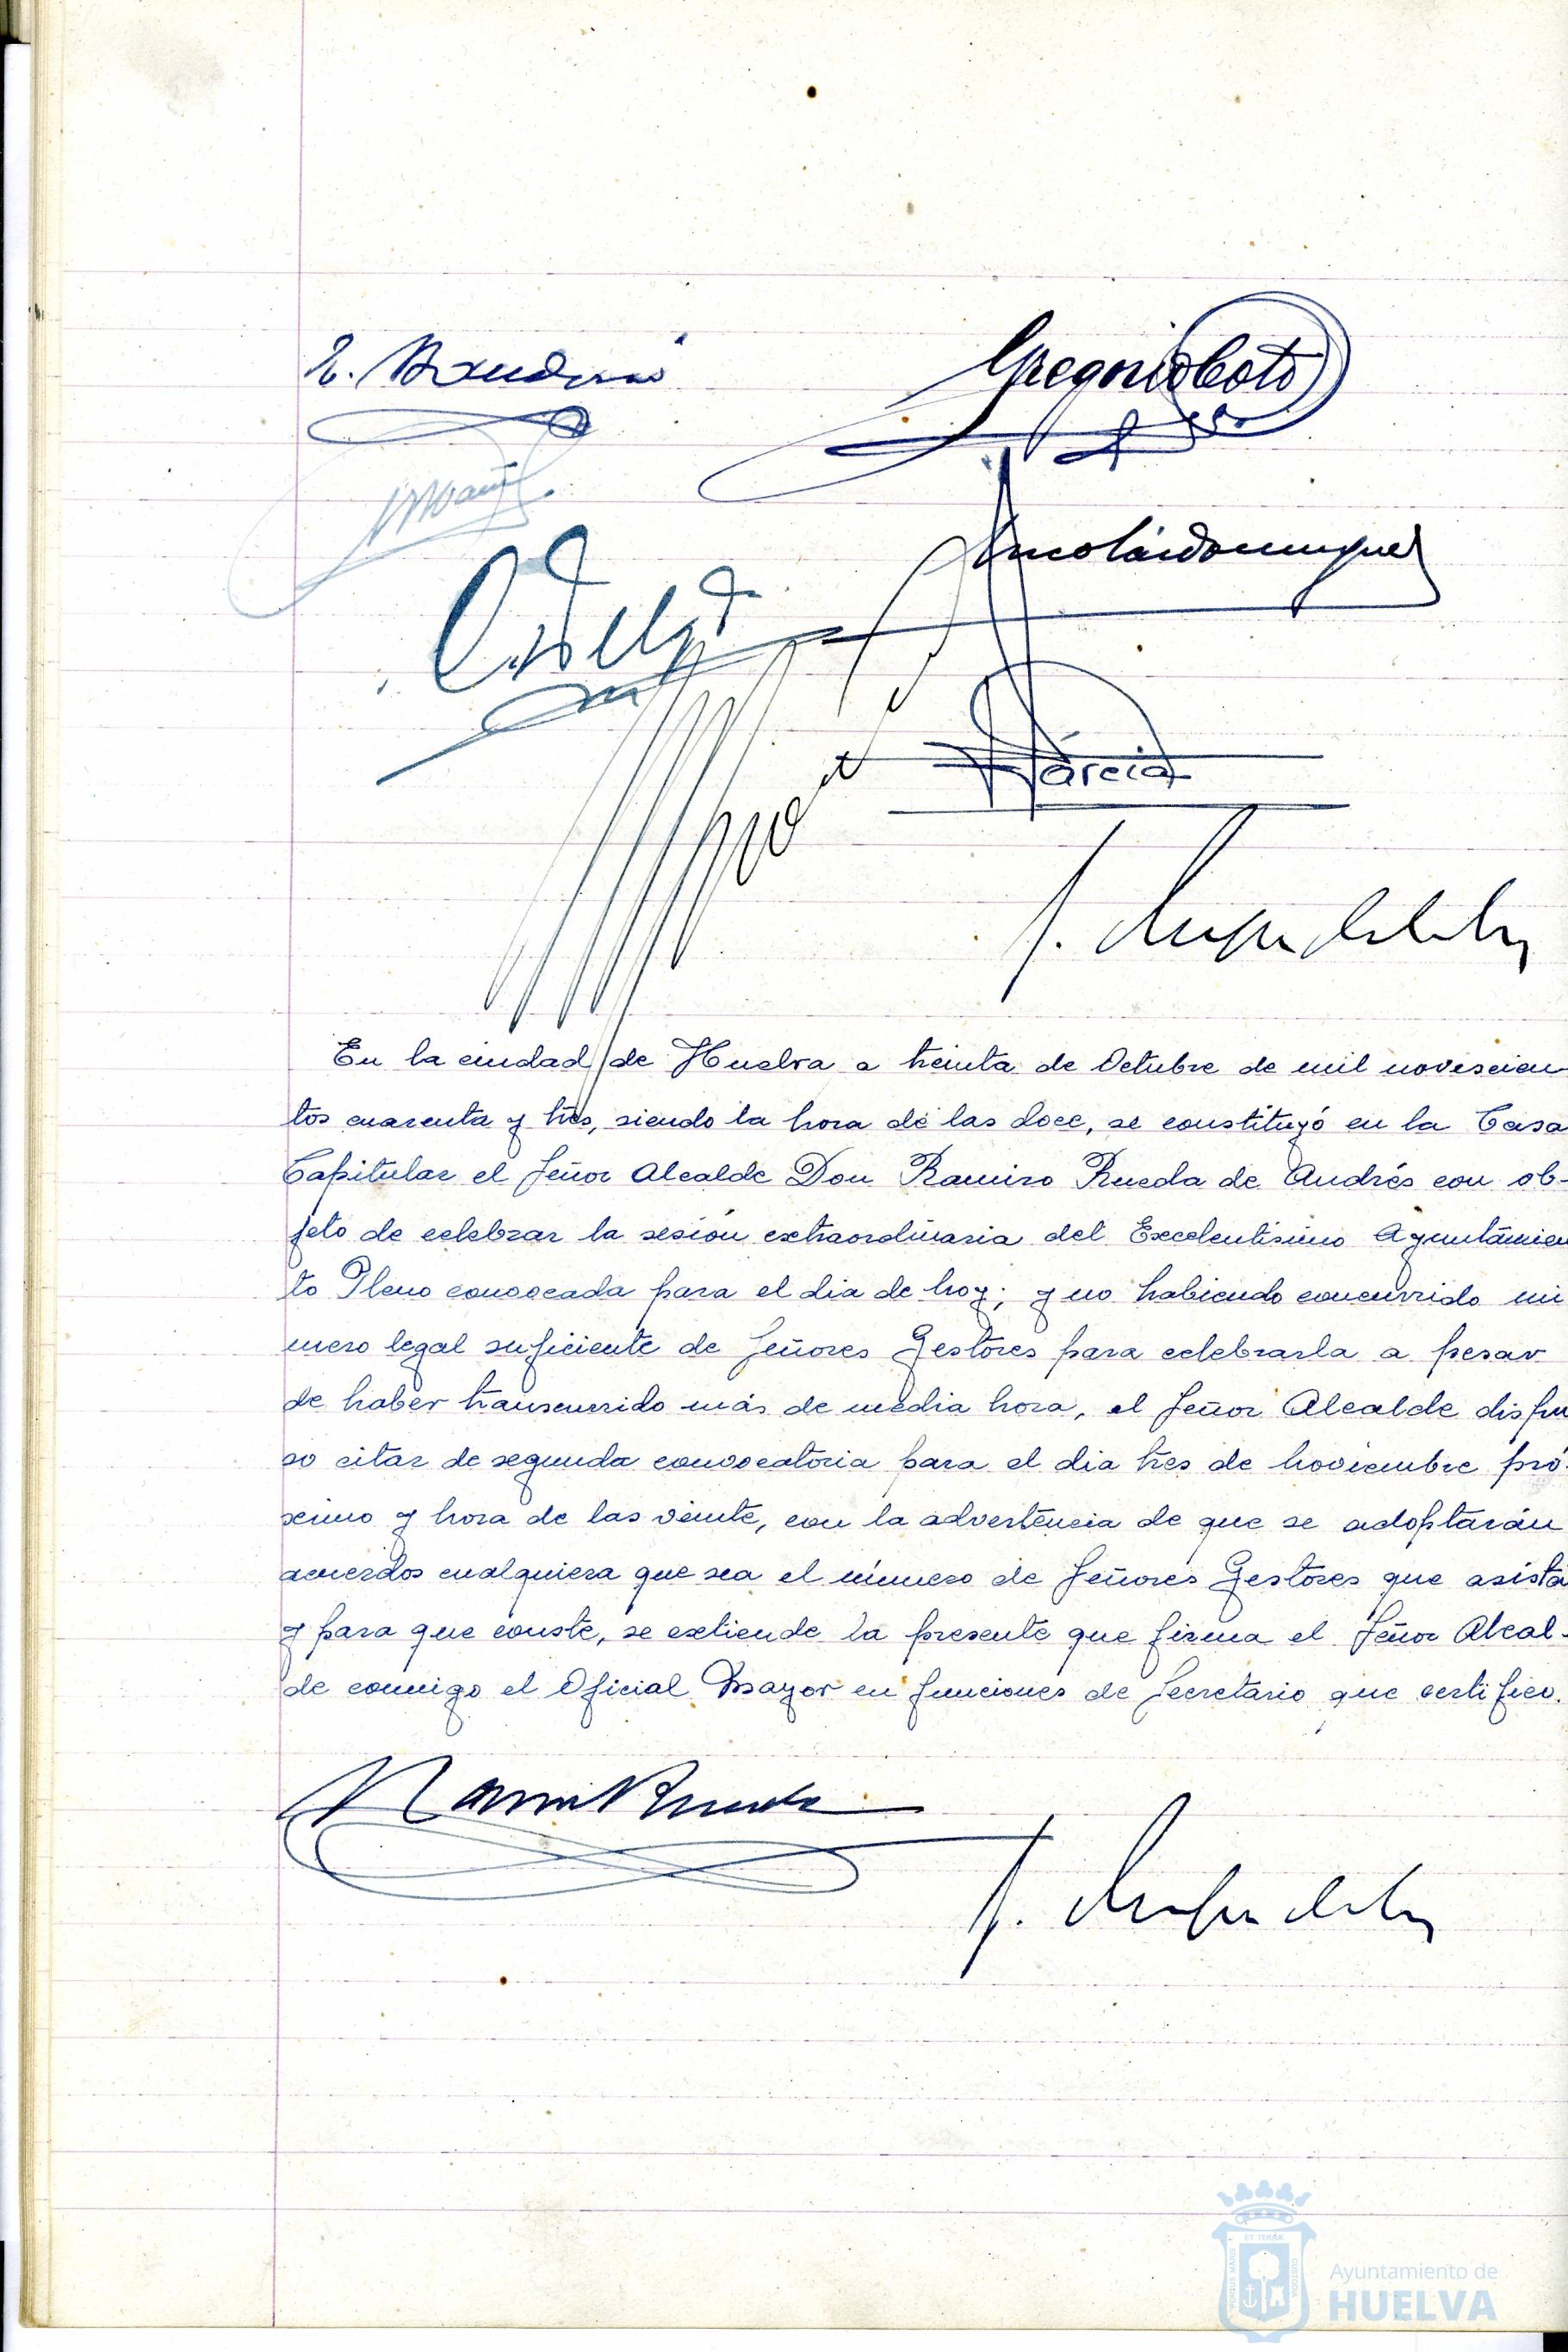 Gregorio Coto
Nicolás Dominguez
García
En la ciudad de Huelva a treinta de Octubre de mil novescien
tos cuarenta y tres, siendo la hora de las doce, se constituyó en la Casa
Capitular el Señor Alcalde Don Ramiro Rueda de Andrés con ob-
jeto de celebrar la sesión extraordinaria del Excelentísimo Ayuntamien
to Pleno convocada para el dia de hoy; y no habiendo concurrido nú
mero legal suficiente de Señores Gestores para celebrarla a pesar
de haber transcurrido más de media hora, el Señor Alcalde dispu
so citar de segunda convocatoria para el dia tres de noviembre pró-
ximo y hora de las veinte, con la advertencia de que se adoptarán
acuerdos cualquiera que sea el número de Señores Gestores que asista
y para que conste, se extiende la presente que firma el Señor Alcal-
de conmigo el Oficial Mayor en funciones de Secretario que certifico.
Ramiro Rueda
PORTUS MARIS ET TERRAE CUSTODIA
Ayuntamiento de
HUELVA